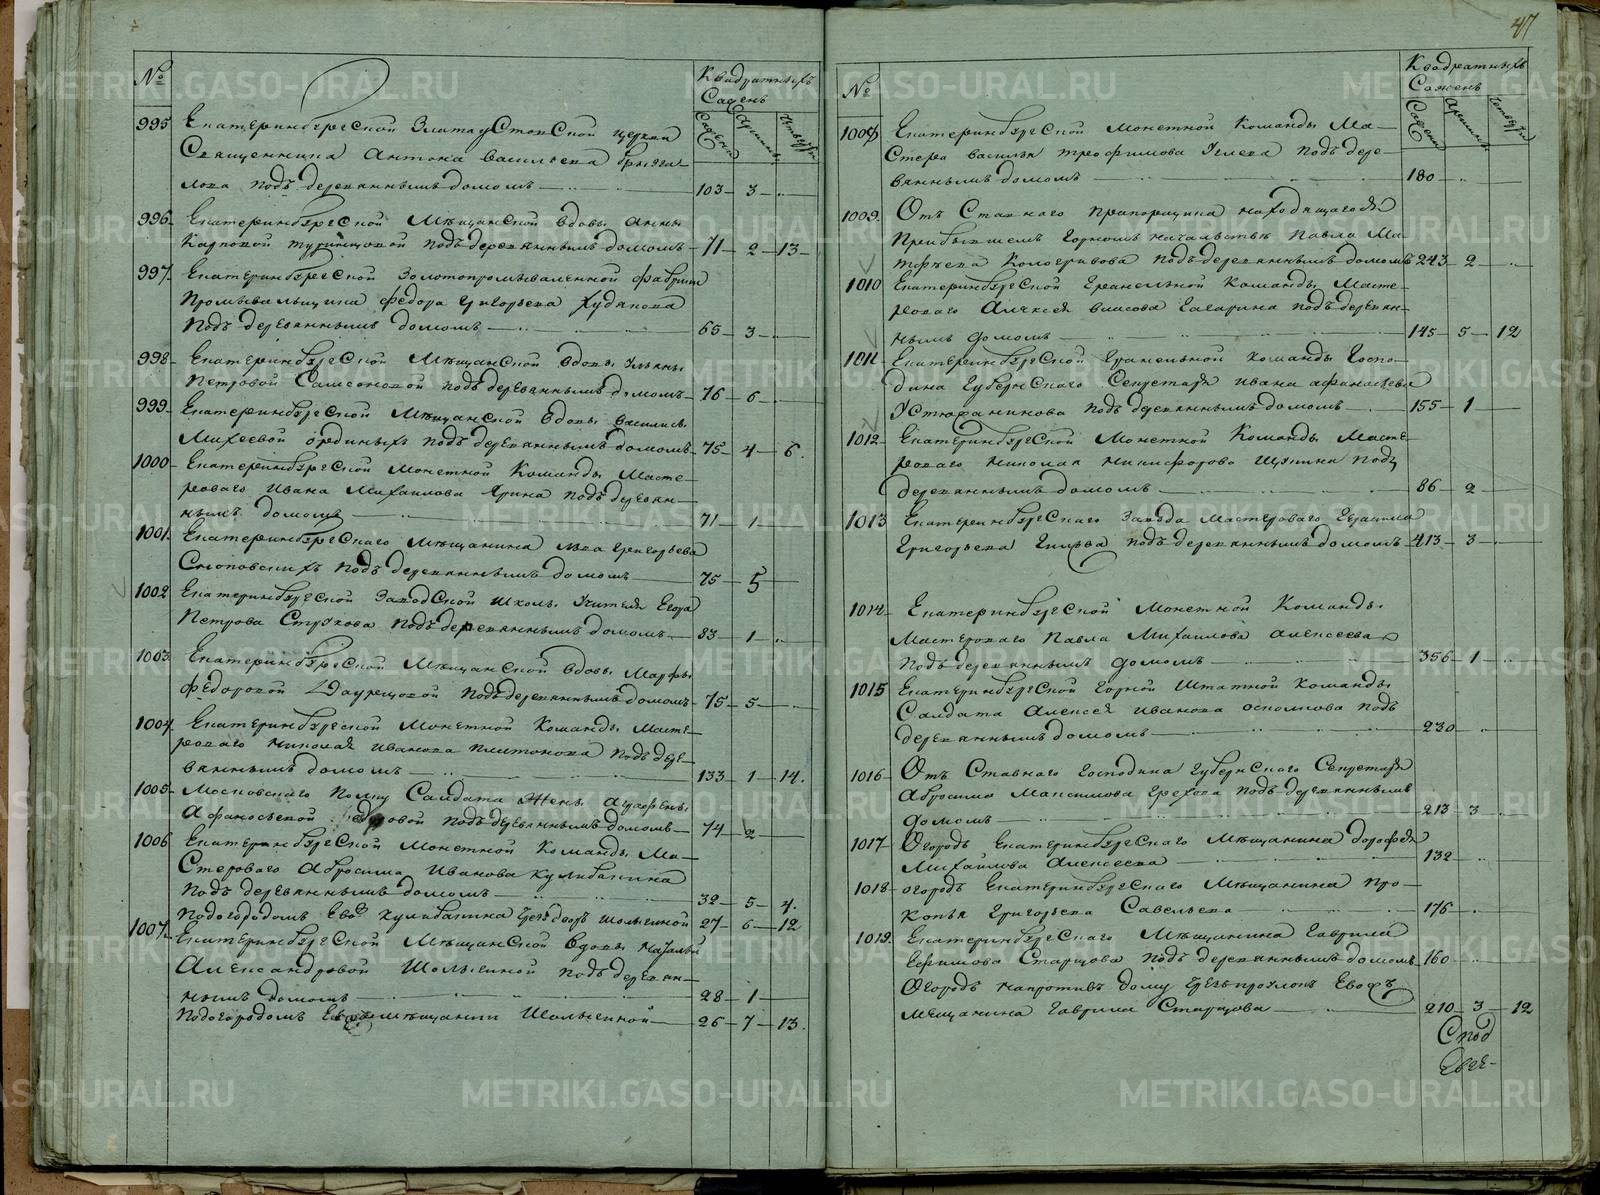 №
Квадратныхъ
Сажень
Сажени
Аршины
Четверти
995 Екатеринбургской Златоустовской церкви
Священника Антона Васильева
лова подъ деревяннымъ домомъ 103 3
996 Екатеринбургской Мѣщанской вдовы Анны
Карповой подъ деревяннымъ домомъ 71 2 13
997 Екатеринбургской Золотопромываленной фабрики
Промывальщика Федора Григорьева Худякова
подъ деревяннымъ домомъ 65 3
998 Екатеринбургской Мѣщанской вдовы Ульяны
Петровой Самсоновой подъ деревяннымъ домомъ 76 6
999 Екатеринбургской Мѣщанской вдовы Василисы
Михеевой подъ деревяннымъ домомъ 75 4 6
1000 Екатеринбургской Монетной Команды Масте-
роваго Ивана Михайлова Ярина подъ деревян-
нымъ домомъ 71 1
1001 Екатеринбургскаго Мѣщанина Льва Григорьева
подъ деревяннымъ домомъ 75 5
1002 Екатеринбургской Заводской школы Учителя Егора
Петрова подъ деревяннымъ домомъ 83 1
1003 Екатеринбургской Мѣщанской вдовы Марфы
Федоровой подъ деревяннымъ домомъ 75 5
1004 Екатеринбургской Монетной Команды Масте-
роваго Николая Иванова Платонова подъ дере-
вяннымъ домомъ 133 1 14
1005 Московскаго Полку Салдата Жены Агафены
Афанасьевой подъ деревяннымъ домомъ 74 2
1006 Екатеринбургской Монетной Команды Ма-
стероваго Абросима Иванова Кулибакина
подъ деревяннымъ домомъ 32 5 4
Подогородомъ Ево Кулибакина 27 6 12
1007 Екатеринбургской Мѣщанской вдовы Натальи
Александровой подъ деревян-
нымъ домомъ 28 1
Подогородомъ 26 7 13
47
№
Квадратныхъ
Сажень
Сажени
Аршины
Четверти
1008 Екатеринбургской Монетной Команды Ма-
стера Василья Трофимова Углева подъ дере-
вяннымъ домомъ 180
1009 Отъ Ставнаго Прапорщика находящагося
При бывшемъ Горномъ начальствѣ Павла Ма
твѣева Кологривова подъ деревяннымъ домомъ 243 2
1010 Екатеринбургской Гранильной Команды Масте-
роваго Алексея Власова Гагарина подъ деревян-
нымъ домомъ 145 5 12
1011 Екатеринбургской Гранильной Команды Госпо-
дина Губернскаго Секретаря Ивана Афанасьева
Устюжанинова подъ деревяннымъ домомъ 155 1
1012 Екатеринбургской Монетной Команды Масте-
роваго Николая Никифорова Щукина подъ
деревяннымъ домомъ 86 2
1013 Екатеринбургскаго Завода Мастероваго Герасима
Григорьева Гилева подъ деревяннымъ домомъ 413 3
1014 Екатеринбургской Монетной Команды
Мастероваго Павла Михайлова Алексеева
подъ деревяннымъ домомъ 356 1
1015 Екатеринбургской Горной Штатной Команды
Салдата Алексея Иванова подъ
деревяннымъ домомъ 230
1016 Отъ Ставнаго Господина Губернскаго Секретаря
Абросима Максимова Грехова подъ деревяннымъ
домомъ 213 3
1017 Огородъ Екатеринбургскаго Мѣщанина Дорофея
Михайлова Алексеева 132
1018 Огородъ Екатеринбургскаго Мѣщанина Про-
копья Григорьева Савельева 176
1019 Екатеринбургскаго Мѣщанина Гаврила
Ефимова Старцова подъ деревяннымъ домомъ 160
Огородъ напротивъ дому чрезъ проулокъ Евожъ
Мещанина Гаврила Старцова 210 3 12
METRIKI.GASO-URAL.RU